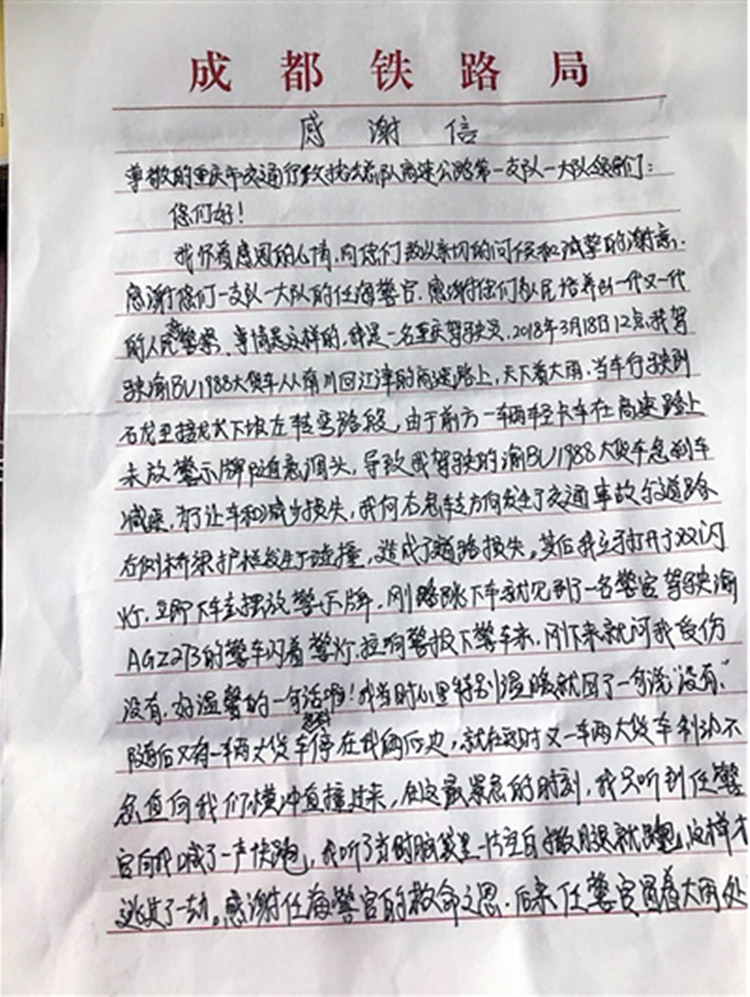 成都铁路局
感谢信
尊敬的重庆市交通行政执法总队高速公路第一支队一大队领导们：
您们好！
我怀着感恩的心情，向您们致以亲切的问侯和诚挚的谢意，
感谢您们一支队一大队的任海警官，感谢您们队民培养出一代又一代
的人民警察，事情是这样的，我是一名重庆驾驶员，2018年3月18日12点，我驾
驶渝BU1988大货车从南川回江津的高速路上，天下着大雨，当车行驶到
石龙里接龙长下坡左转弯路段，由于前方一车两轻卡车在高速路上
未放警示牌随意调头，导致我驾驶的渝BU1988大货车急刹车
减速，为了让车和减少损失，我向右急转方向发生了交通事故与道路
右侧桥梁护栏发生了碰撞，造成了道路损失，其后我立于打开了双闪
灯，立即下车去摆放警示牌，刚路跳下车就见到了一名警官驾驶渝
AGZ273的警车闪着警灯，拉响警报下警车来，刚下来就问我受伤
没有，好温馨的一句话啊！我当时心里特别温暖就回了一句说"没有，"
随后又有一车两大货车停在我俩后边，就在这时又一车两大货车制动不
急直向我们横冲直撞过来，在这最紧急的时刻，我只听到任警
官向我喊了一声快跑，我听了当时脑袋里一片空白撒腿就跑，这样才
逃过了一劫。感谢任海警官的救命之恩，后来任警官冒着大雨处